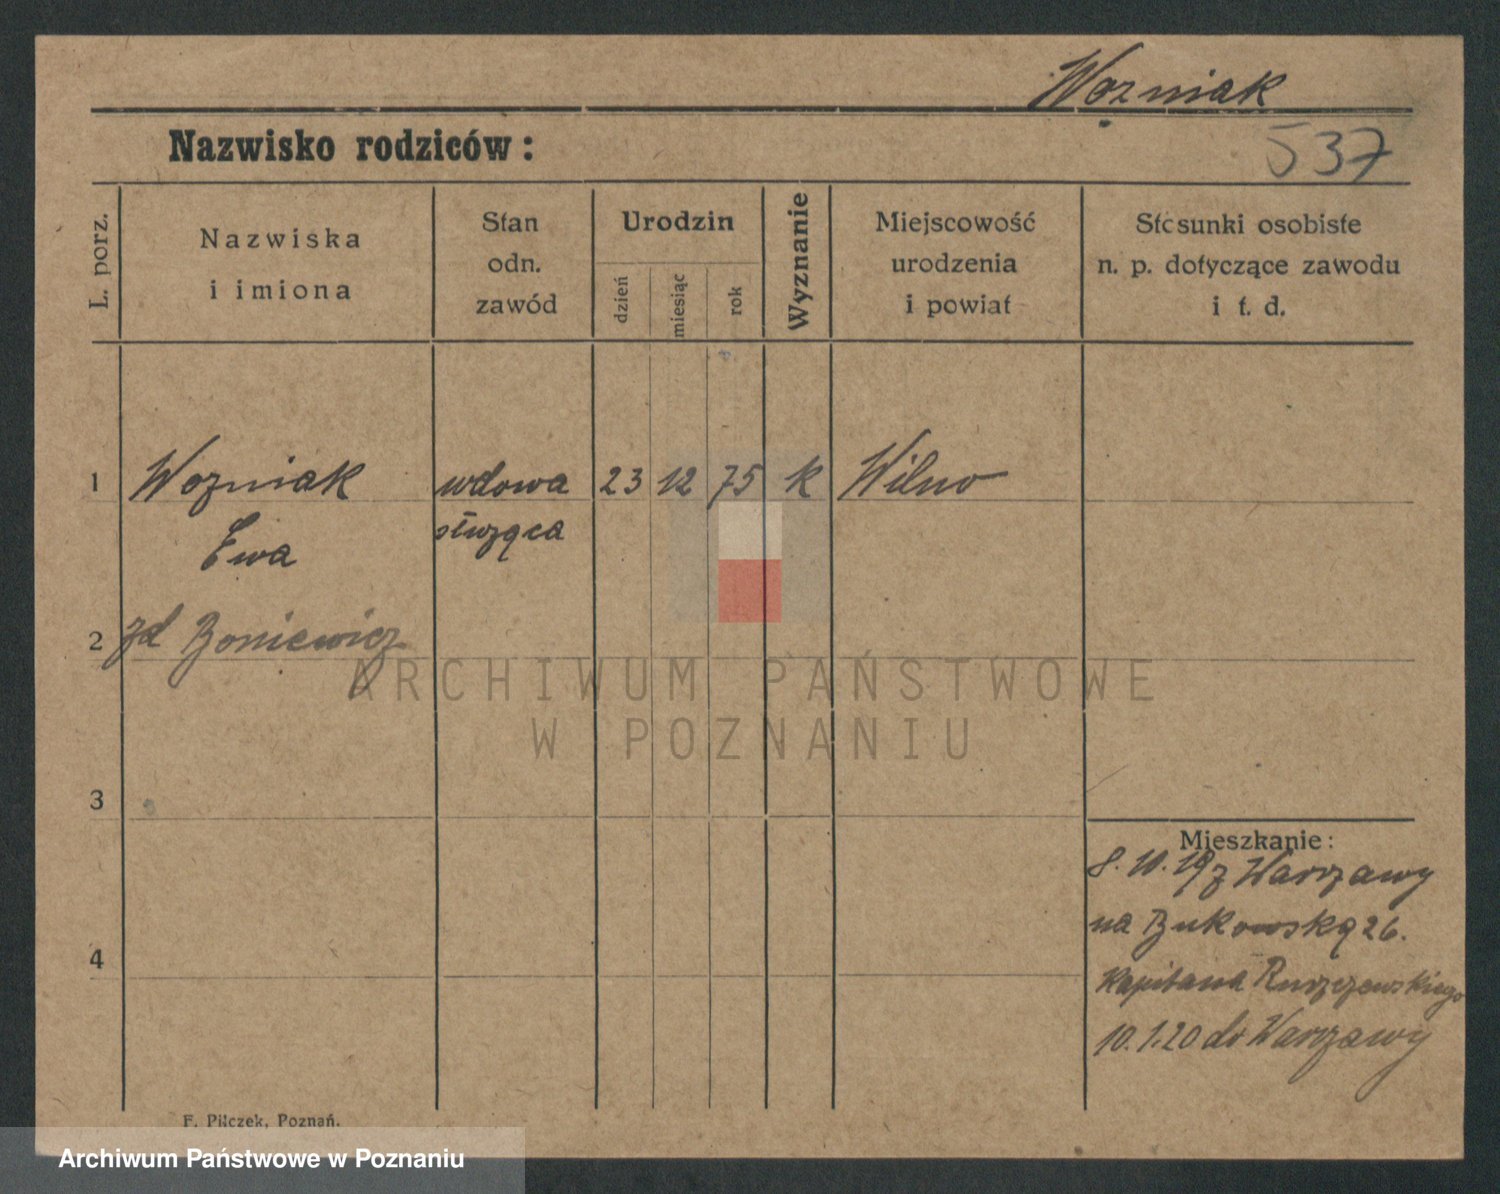 Wozniak
Nazwisko rodziców:
537
L. porz.
Nazwiska
i imiona
Stan
odn.
zawód
Urodzin
dzień
miesiąc
rok
Wyznanie
Miejscowość
urodzenia
i powiat
Stosunki osobiste
n. p. dotyczące zawodu
i t. d.
1 Wozniak wdowa 23 12 75 k Wilno
Ewa służąca
2 zd Boniewicz
ARCHIWUM PAŃSTWOWE
W POZNANIU
3
Mieszkanie:
8.10.19 z Warszawy
na Bukowską 26.
4
Kapitana
10.1.20 do Warszawy
F. Pilczek, Poznań.
Archiwum Państwowe w Poznaniu